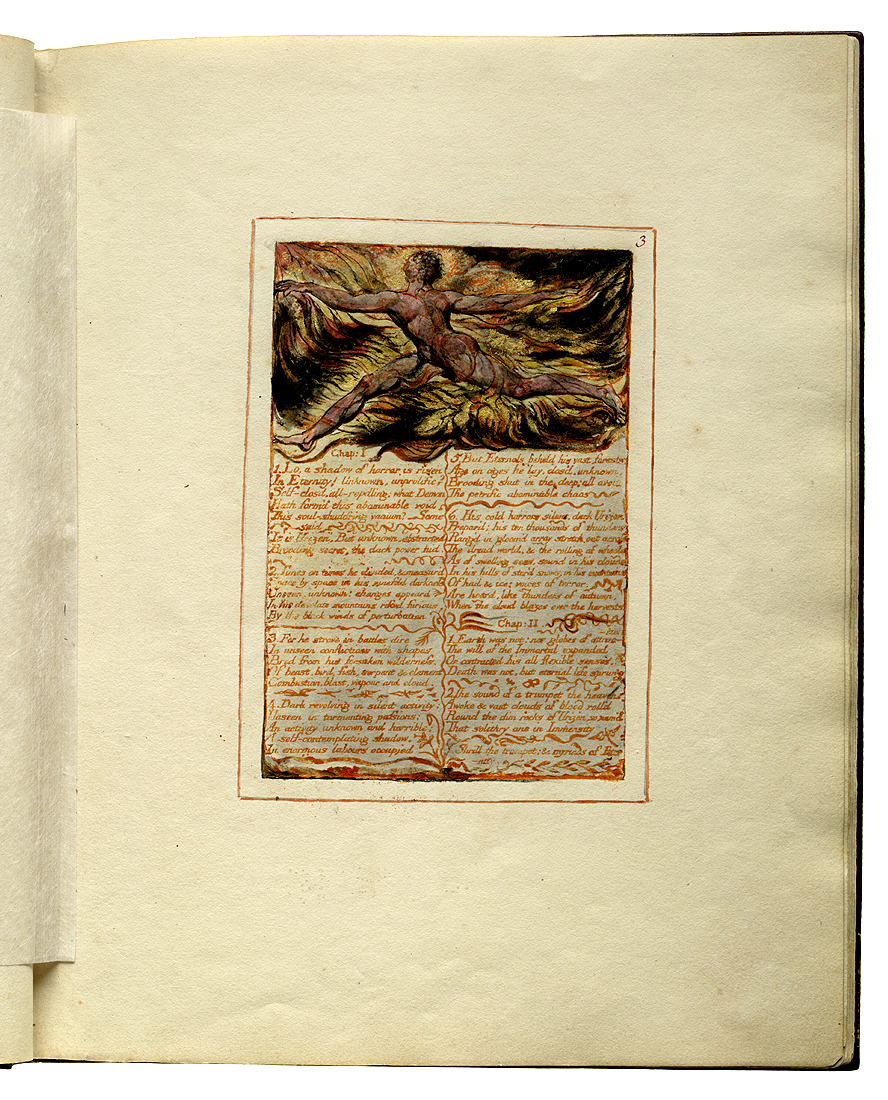 3
Chap: I
1. Lo, a shadow of horror is risen
In Eternity! Unknown, unprolific?
Self-closd, all-repelling; what Demon
Hath form'd this abominable void
This soul-shudd'ring vacuum?—Some
said
It is Urizen, But unknown, abstracted
Brooding secret, the dark power hid.
2. Times on times he divided, & measur'd
Space by space in his ninefold darkness
Unseen, unknown! changes appeard
In his desolate mountains rifted furious
By the black winds of perturbation
3. For he strove in battles dire
In unseen conflictions with shapes
Bred from his forsaken wilderness,
Of beast, bird, fish, serpent & element
Combustion, blast, vapour and cloud.
4. Dark revolving in silent activity:
Unseen in tormenting passions;
An activity unknown and horrible;
A self-contemplating shadow,
In enormous labours occupied
5. But Eternals beheld his vast forests
Age on ages he lay, clos'd, unknown,
Brooding shut in the deep; all avoid
The petrific abominable chaos
6. His cold horrors silent, dark Urizen
Prepar'd: his ten thousands of thunders
Rang'd in gloom'd array stretch out across
The dread world, & the rolling of wheels
As of swelling seas, sound in his clouds
In his hills of stor'd snows, in his mountains
Of hail & ice; voices of terror,
Are heard, like thunders of autumn,
When the cloud blazes over the harvests
Chap: II
1. Earth was not: nor globes of attrac-
tion
The will of the Immortal expanded
Or contracted his all flexible senses.
Death was not, but eternal life sprung
2. The sound of a trumpet the heavens
Awoke & vast clouds of blood roll'd
Round the dim rocks of Urizen, so nam'd
That solitary one in Immensity
3. Shrill the trumpet: & myriads of Eter-
nity,